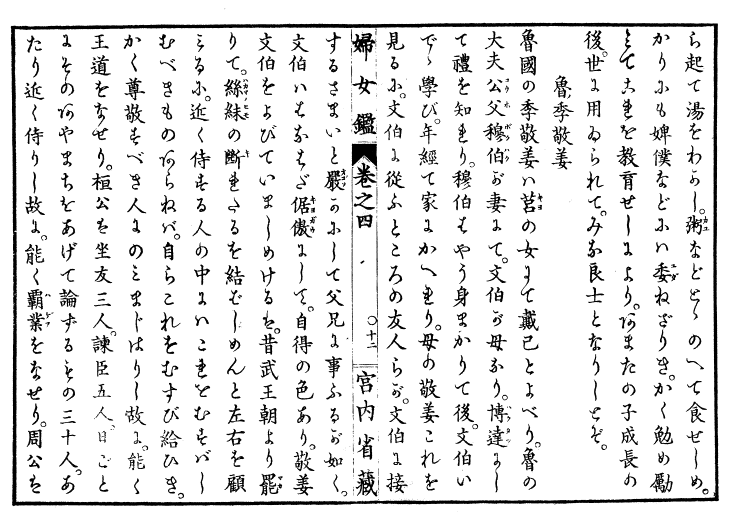 ら起て湯をわかし。粥などとゝのへて食せしめ。
かりにも婢僕などには委ねざりき。かく勉め勵
とてこれを教育せしにより。あまたの子成長の
後。世に用ゐられて。みな良士となりしとぞ。
魯季敬姜
魯國の季敬姜は莒の女にて戴己とよべり。魯の
大夫公父穆伯が妻にて。文伯が母なり。博達にし
て禮を知れり。穆伯はやう身まかりて後。文伯い
でゝ學び。年經て家にかへれり。母の敬姜これを
見るに。文伯に從ふところの友人らが。文伯に接
婦女鑑 卷之四 〇十二 宮内省藏
するさまいと嚴かにして父兄に事ふるが如く。
文伯はなはだ倨傲にして。自得の色あり。敬姜
文伯をよびていましめけるは。昔武王朝より罷
りて。絲絑の斷れたるを結ばしめんと左右を顧
みるに。近く侍する人の中にはこれをむすばし
むべきものあらねば。自らこれをむすび給ひき。
かく尊敬すべき人にのみまじはりし故に。能く
王道をなせり。桓公は坐友三人。諫臣五人。日ごと
にそのあやまちをあげて論ずるもの三十人。あ
たり近く侍りし故に。能く覇業をなせり。周公は